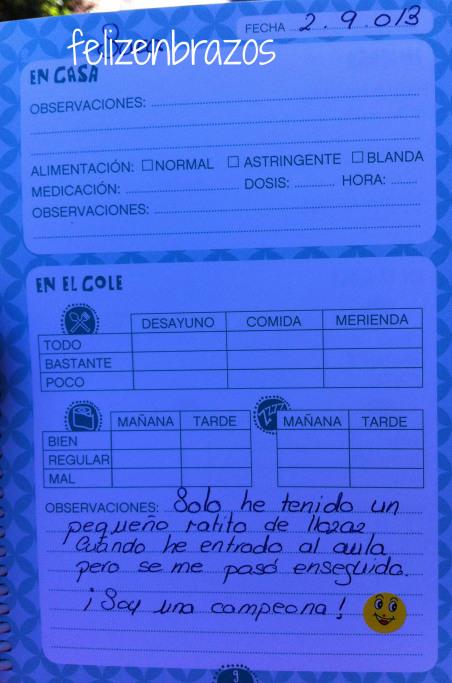 felizenbrazos
FECHA 2.9.013
EN CASA
OBSERVACIONES:
ALIMENTACIÓN: NORMAL ASTRINGENTE BLANDA
MEDICACIÓN: DOSIS: HORA:
OBSERVACIONES:
EN EL COLE
DESAYUNO COMIDA MERIENDA
TODO
BASTANTE
POCO
MAÑANA TARDE MAÑANA TARDE
BIEN
REGULAR
MAL
OBSERVACIONES: Solo he tenido un
pequeño ratito de
Cuando he entrado al aula
pero se me pasó enseguida.
¡Soy una campeona!